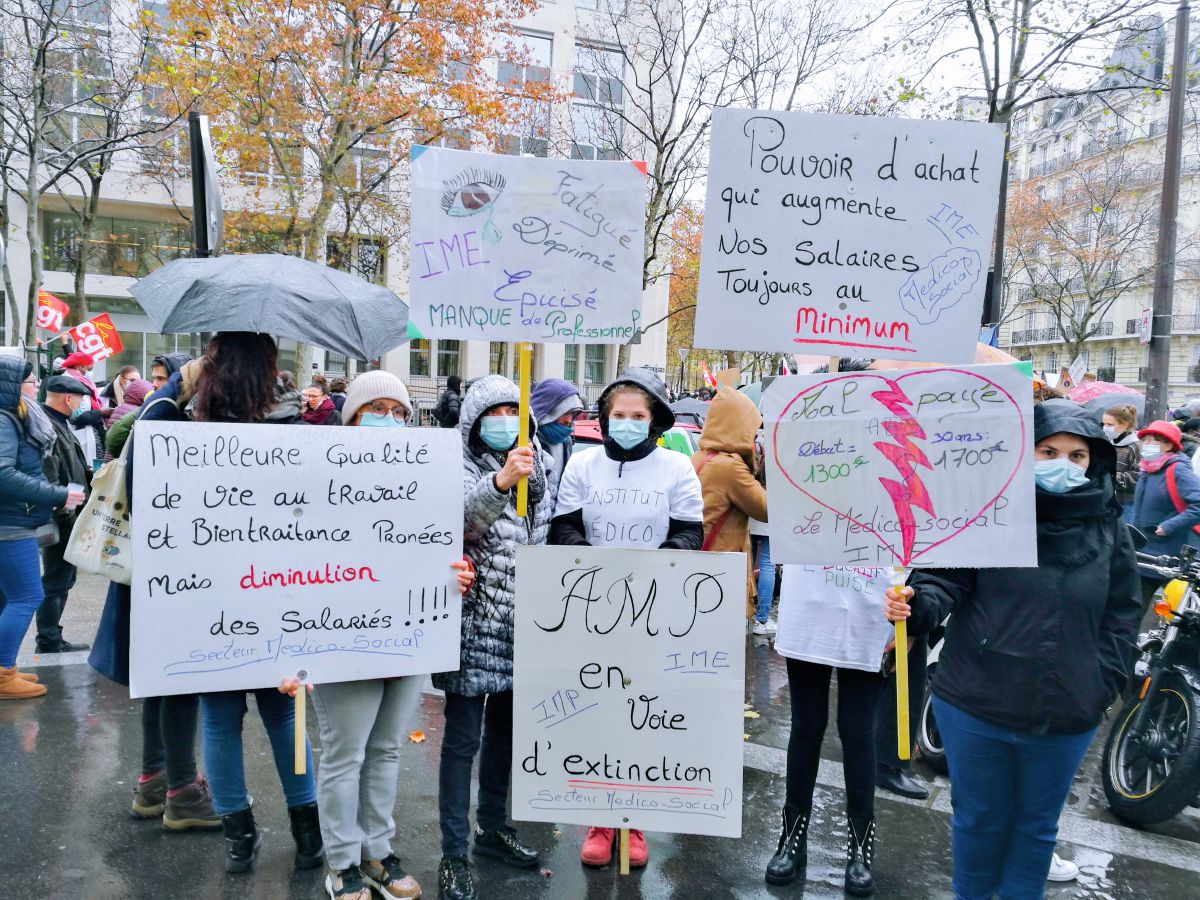 cgt
cgt
IME
Fatigué
Déprimé
Epuisé
MANQUE de Professionnel
Pouvoir d'achat
qui augmente
Nos Salaires
Toujours au
Minimum
IME
Medico
social
Meilleure Qualité
de vie au travail
et Bientraitance Pronées
Mais diminution
des Salariés !!!!
Secteur Medico-Social
INSTITUT
MÉDICO
AMP
IME
en
IMP
Voie
d'extinction
Secteur Medico-Social
Mal payé
Début =
1300€
30 ans :
1700€
Le Médico-social
IME